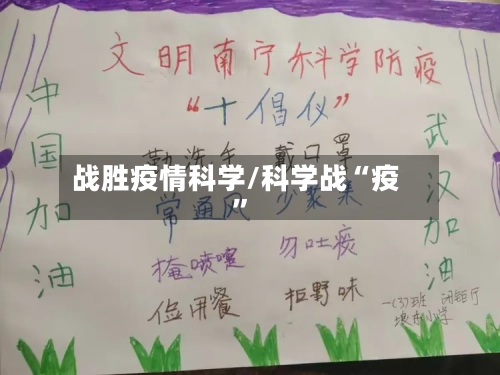 文明南宁科学防疫
“十倡仪”
中国加油
武汉加油
勤洗手 戴口罩
战胜疫情科学/科学战“疫
”
常通风 少聚集
掩喷嚏 勿吐痰
俭用餐 拒野味
一(3)班
小学